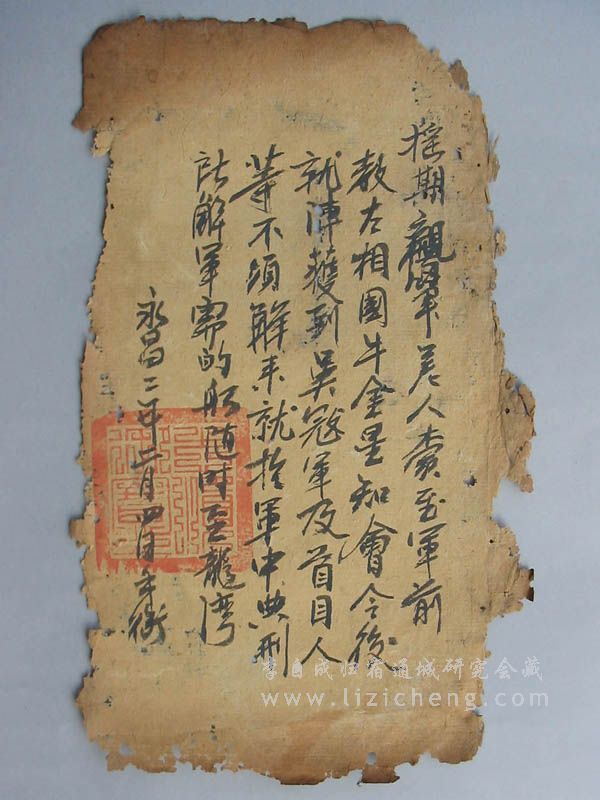 按期觀軍差人賫至軍前
敕左相國牛金星知會今後
就陣獲到吴冦軍及首目人
等不須解来就於軍中典刑
欽解軍需的船随時至龍湾
永昌二年二月四日
李自成归宿通城研究会藏
www.lizicheng.com